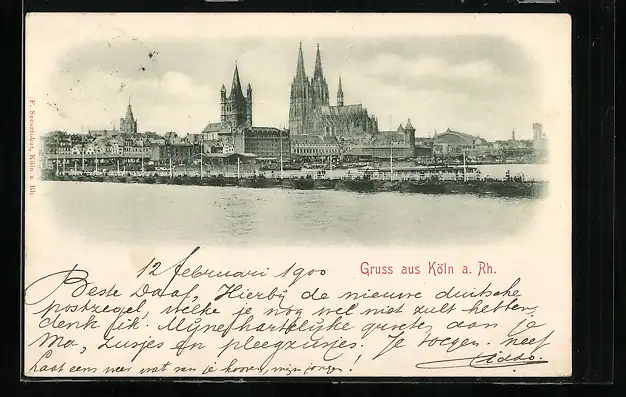 F. Szesztokat, Köln a. Rh.
12 februari 1900
Gruss aus Köln a. Rh.
Beste Daaf, Hierbij de nieuwe duitsche
postzegel, welke je nog wel niet zult hebben,
denk ik. Mijne hartelijke groeten aan je
Ma, zusjes en pleegzusjes. Je toegen. neef
Laat eens weer wat van je hooren, mijn jongen!